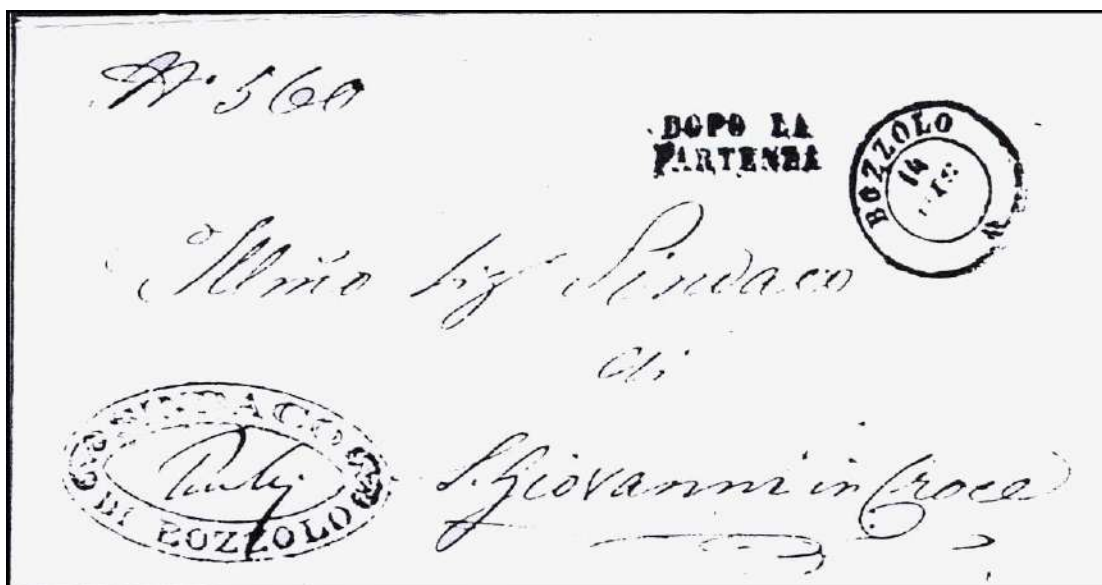 N° 560
DOPO LA
PARTENZA
BOZZOLO
14
Illmo Sig Sindaco
di
S. Giovanni in Croce
SINDACO
DI BOZZOLO